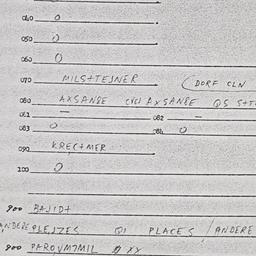 040 0
050 0
060 0
070 MILSTEJNER (DORF CLN
080 AXSANBE CYCI AXSANBE QS
081 — 082 —
083 0 084 0
090 KRECTMER
100 0
900 BAJIDT
ANDERE PLEJZES QI PLACES / ANDERE
900 PAROVMJMIL XY